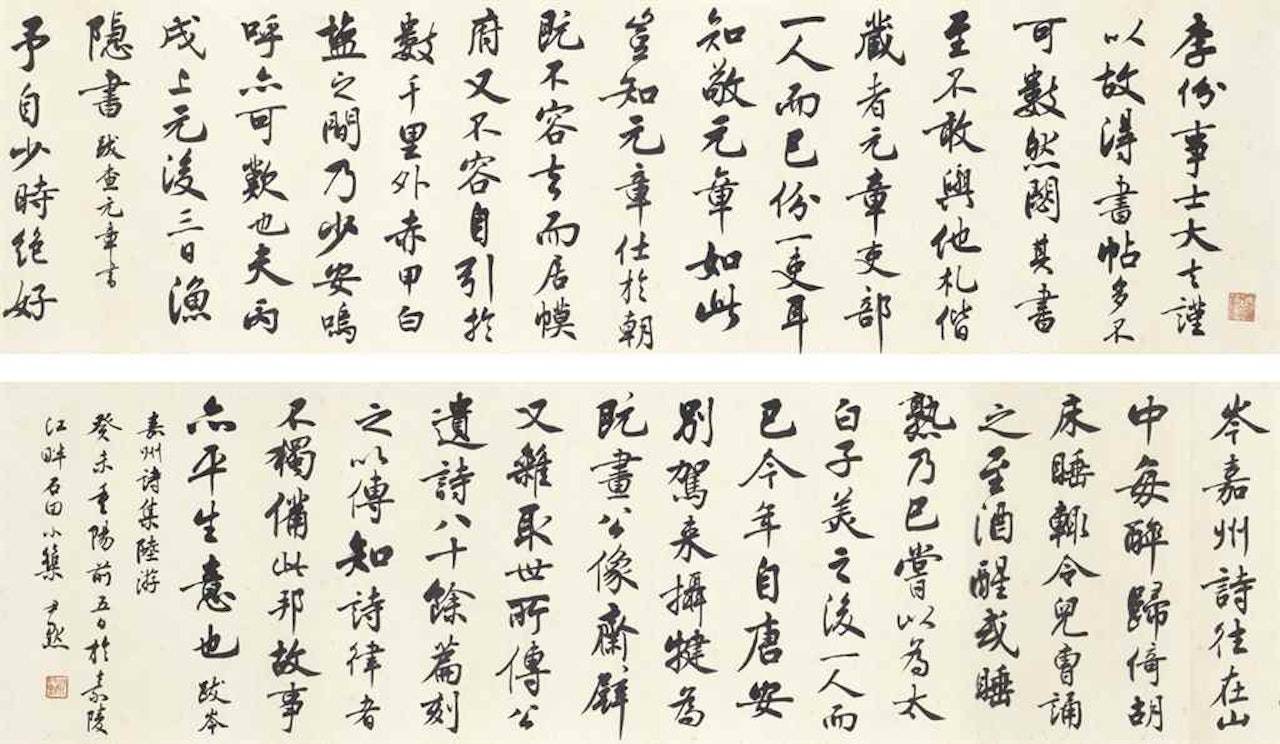 李份事士大夫謹
以故得書帖多不
可數然閟其書
至不敢與他札偕
藏者元章吏部
一人而已份一吏耳
知敬元章如此
豈知元章仕於朝
既不容去而居幙
府又不容自引於
數千里外赤甲白
鹽之間乃少安嗚
呼亦可歎也夫丙
戌上元後三日漁
隱書 跋查元章書
予自少時絕好
岑嘉州詩往在山
中每醉歸倚胡
床睡輒令兒曹誦
之至酒醒或睡
熟乃已嘗以為太
白子美之後一人而
已今年自唐安
別駕來攝犍為
既畫公像齋壁
又雜取世所傳公
遺詩八十餘篇刻
之以傳知詩律者
不獨備此邦故事
亦平生意也 跋岑
嘉州詩集陸游
癸未重陽前五日於嘉陵
江畔石田小築 尹默